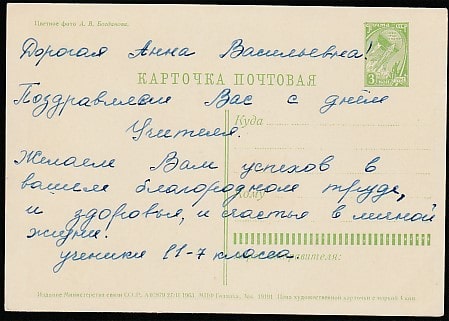 Цветное фото А. В. Богданова.
Дорогая Анна Васильевна!
КАРТОЧКА ПОЧТОВАЯ
ПОЧТА СССР
3
Поздравляем Вас с днём
Куда
Учителя.
Желаем Вам успехов в
вашем благородном труде,
Кому
и здоровья, и счастья в личной
жизни.
ученики 11-7 класса.
Издание Министерства связи СССР. 1963. Зак. Цена художественной карточки с маркой 4 коп.